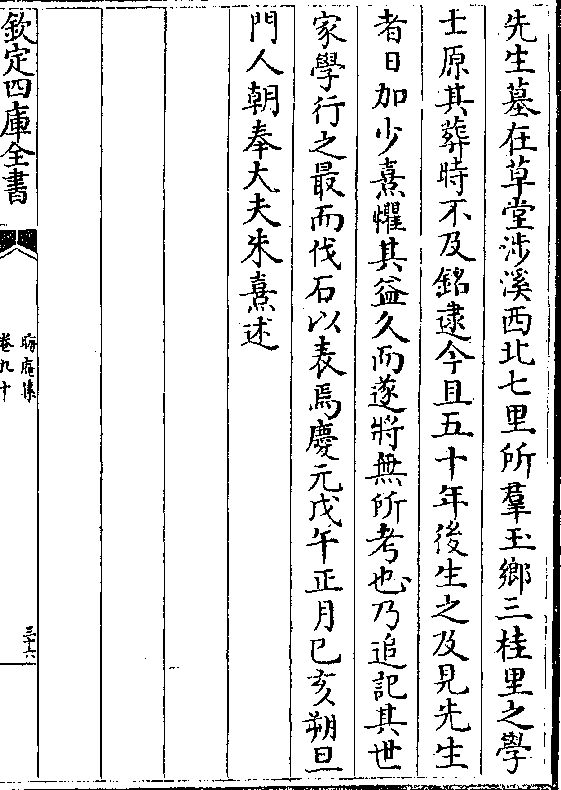 先生墓在草堂涉溪西北七里所羣玉鄉三桂里之學
士原其葬時不及銘逮今且五十年後生之及見先生
者日加少熹懼其益久而遂將無所考也乃追記其世
家學行之最而伐石以表焉慶元戊午正月己亥朔旦
門人朝奉大夫朱熹述
欽定四庫全書
晦庵集
卷九十
三十六